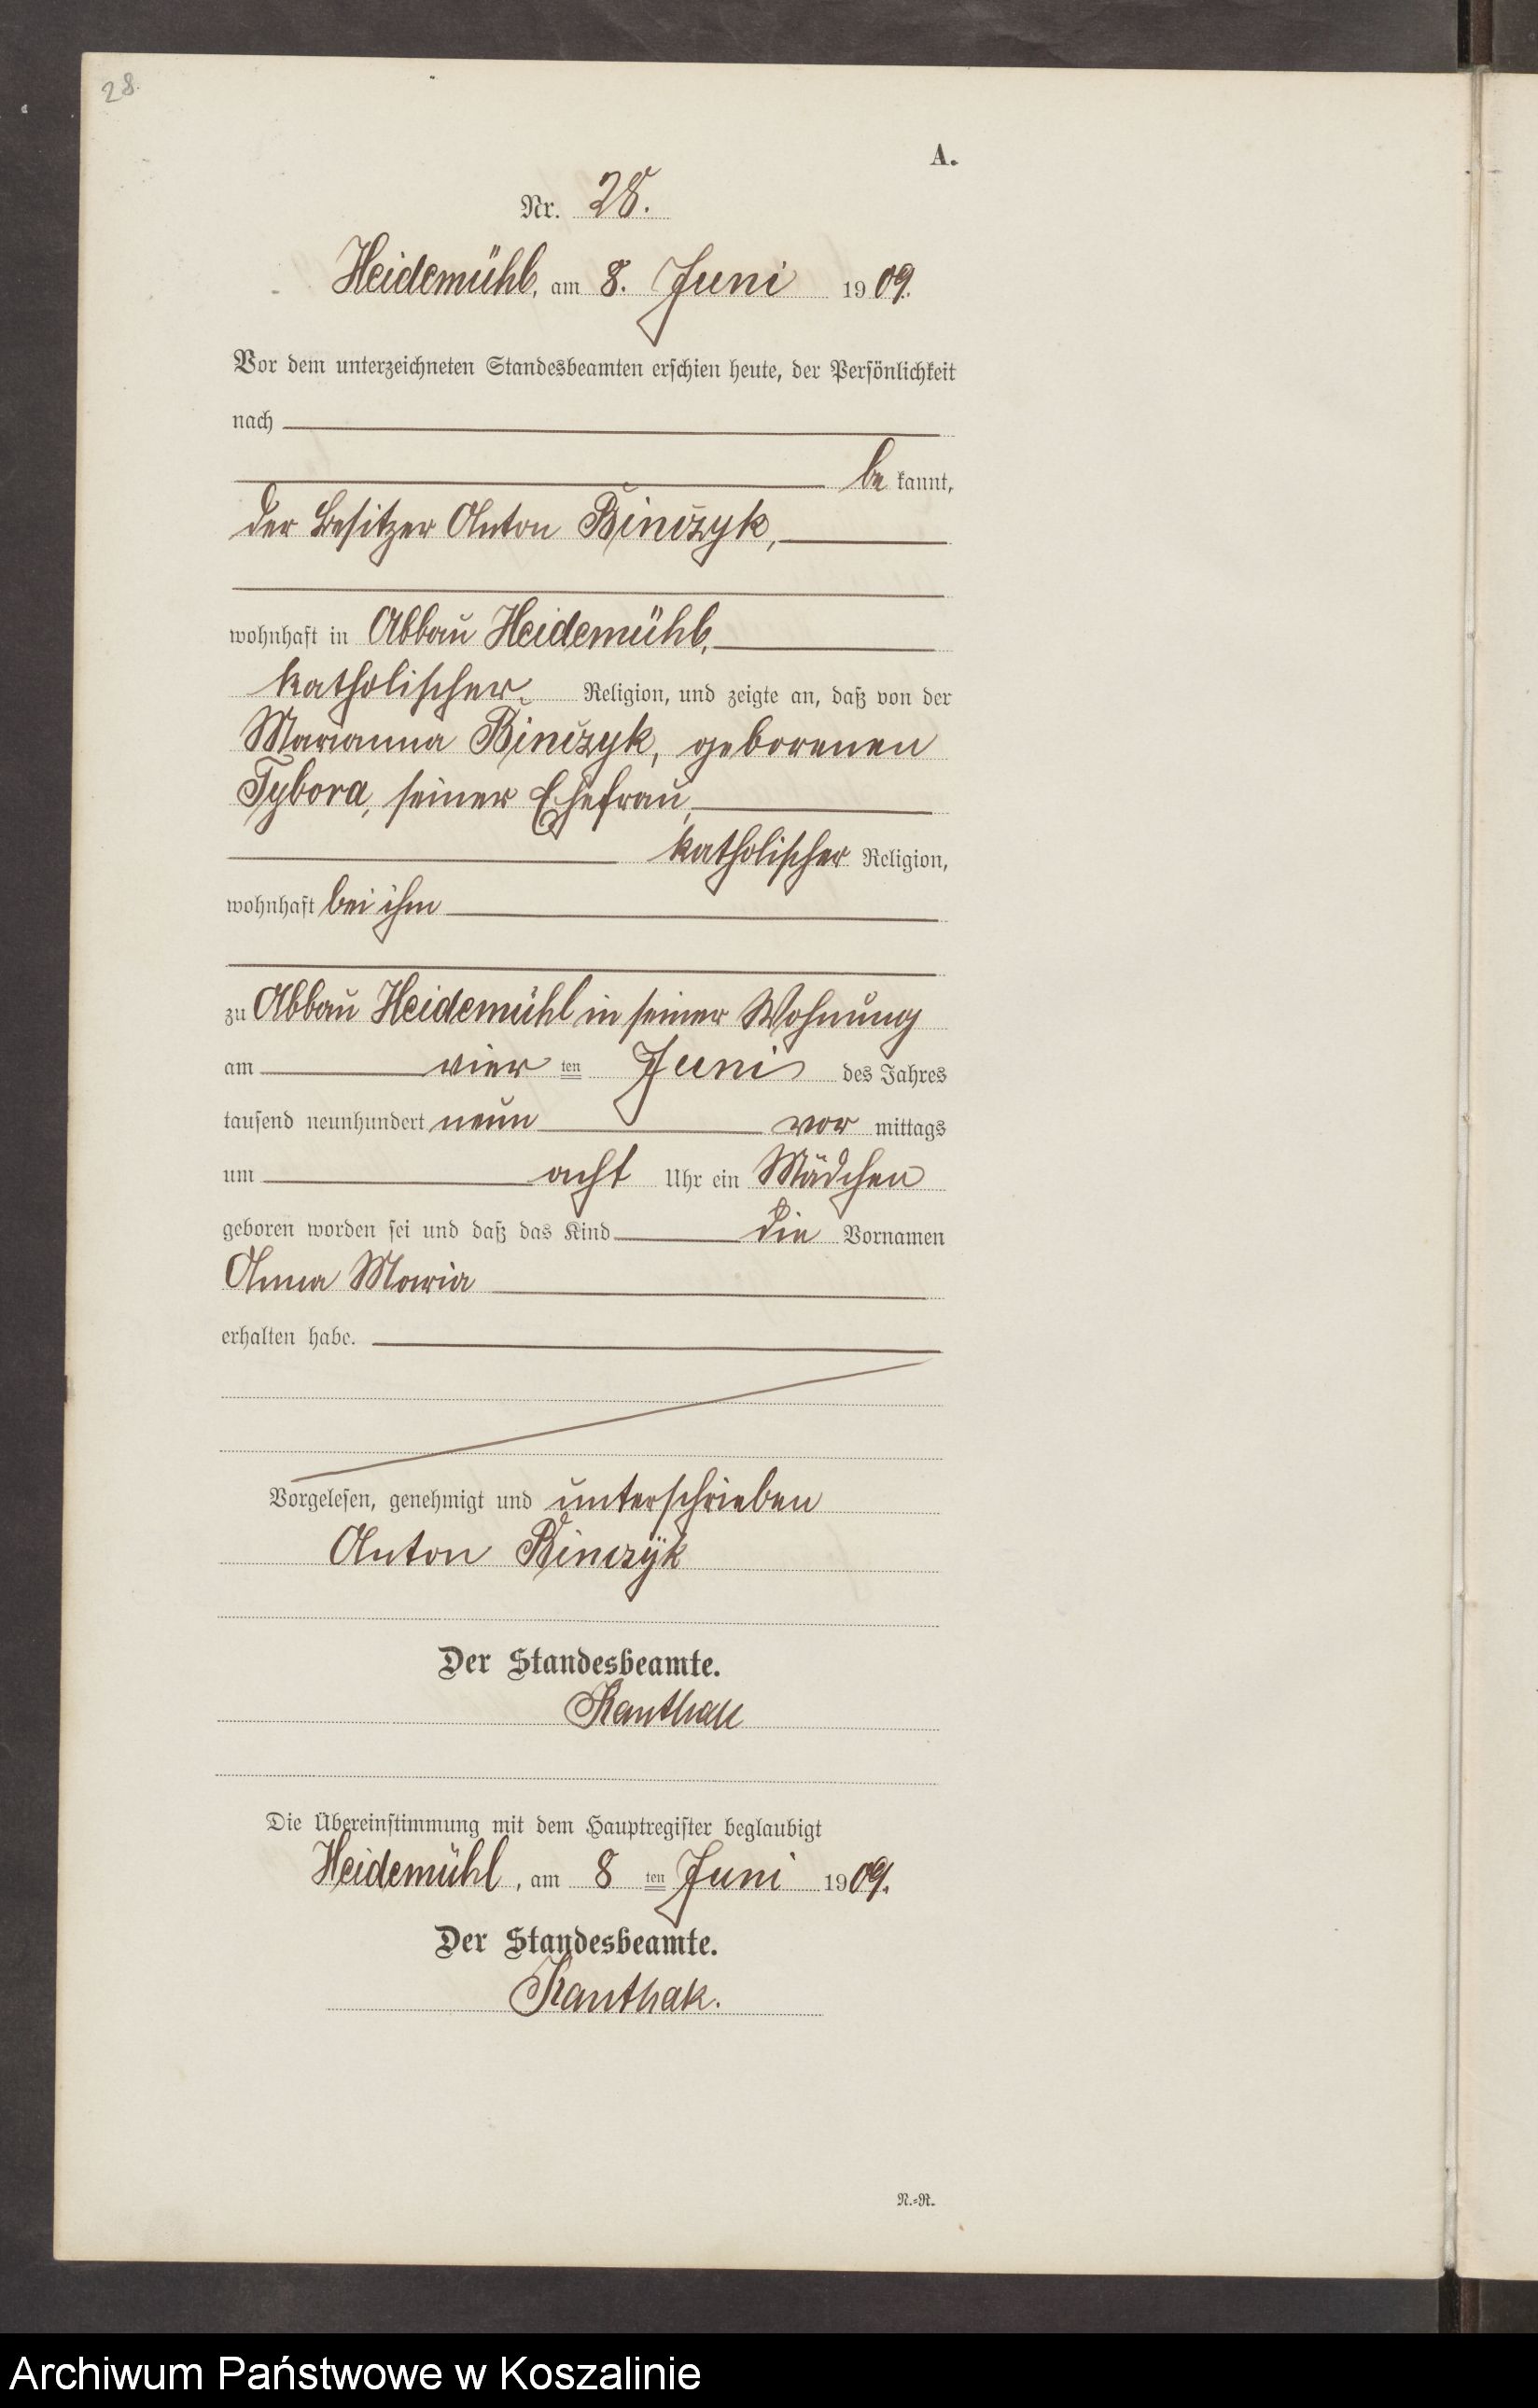 28.
A.
Nr. 28.
Heidemühl, am 8. Juni 1909.
Vor dem unterzeichneten Standesbeamten erschien heute, der Persönlichkeit
nach
be kannt,
der Besitzer Anton Binczyk,
wohnhaft in Abbau Heidemühl,
katholischer Religion, und zeigte an, daß von der
Marianna Binczyk, geborenen
Tybora, seiner Ehefrau,
katholischer Religion,
wohnhaft bei ihm
zu Abbau Heidemühl in seiner Wohnung
am vier ten Juni des Jahres
tausend neunhundert neun vor mittags
um acht Uhr ein Mädchen
geboren worden sei und daß das Kind die Vornamen
Anna Maria
erhalten habe.
Vorgelesen, genehmigt und unterschrieben
Anton Binczÿk
Der Standesbeamte.
Kanthak
Die Übereinstimmung mit dem Hauptregister beglaubigt
Heidemühl, am 8 ten Juni 1909.
Der Standesbeamte.
Kanthak.
N.=R.
Archiwum Państwowe w Koszalinie